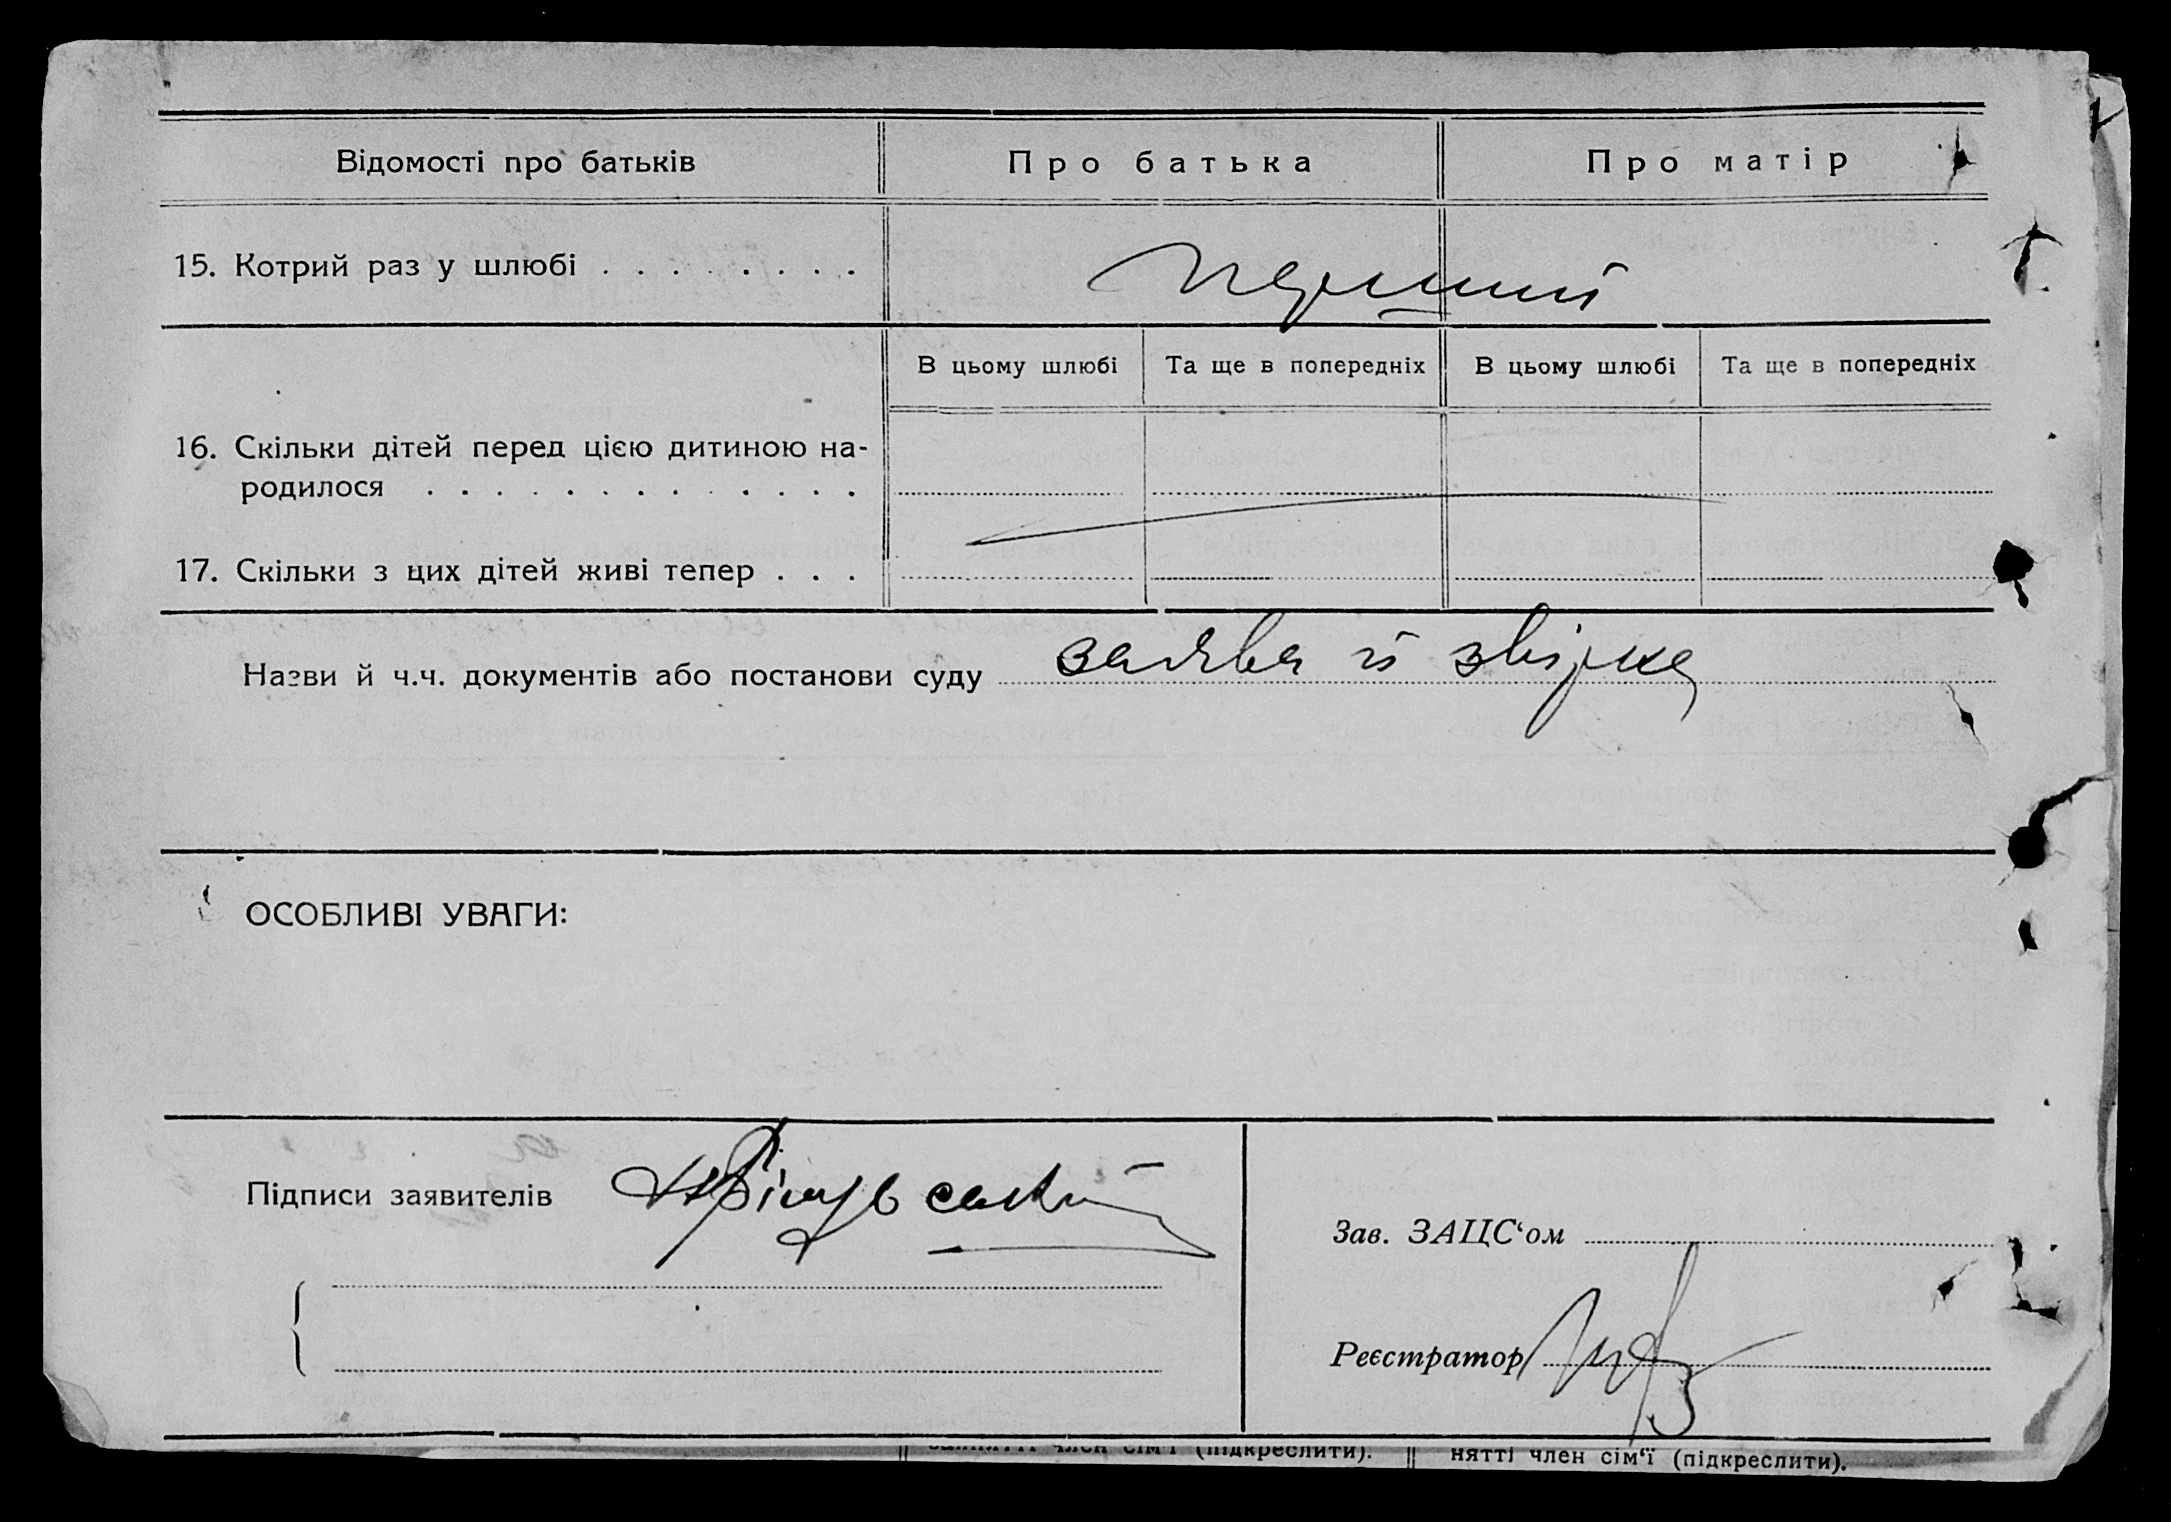 Відомості про батьків Про батька Про матір
15. Котрий раз у шлюбі . . . . . . . . перший
В цьому шлюбі Та ще в попередніх В цьому шлюбі Та ще в попередніх
16. Скільки дітей перед цією дитиною на-
родилося . . . . . . . . . . . .
17. Скільки з цих дітей живі тепер . . .
Назви й ч.ч. документів або постанови суду заява й звірка
ОСОБЛИВІ УВАГИ:
Підписи заявителів
Зав. ЗАЦС‘ом
Реєстратор
член сім‘ї (підкреслити). нятті член сім‘ї (підкреслити).